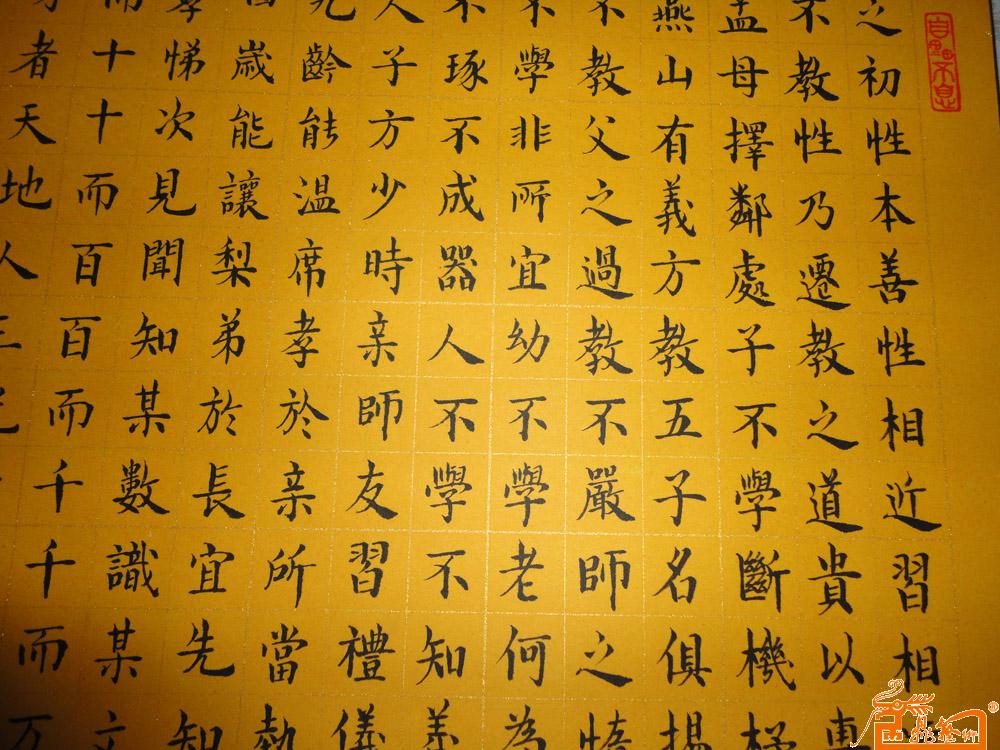 之初性本善性相近習相
不教性乃遷教之道貴以專
孟母擇鄰處子不學斷機杼
燕山有義方教五子名俱揚
不教父之過教不嚴師之惰
不學非所宜幼不學老何為
不琢不成器人不學不知義
人子方少時亲師友習禮儀
九齡能温席孝於亲所當執
歲能讓梨弟於長宜先知
孝悌次見聞知某數識某文
而十十而百百而千千而万
者天地人三